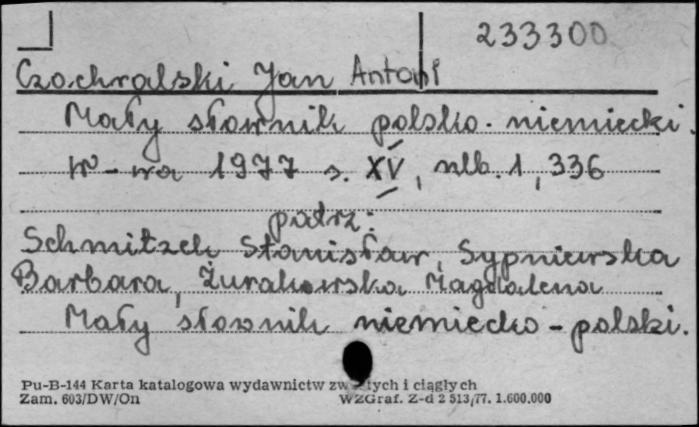 233300
Czochralski Jan Antoni
Mały słownik polsko-niemiecki.
W-wa 1977 s. XV, nlb. 1, 336
patrz:
Schmitzek Stanisław, Sypniewska
Barbara, Żurakowska Magdalena
Mały słownik niemiecko-polski.
Pu-B-144 Karta katalogowa wydawnictw i ciągłych
Zam. 603/DW/On WZGraf. Z-d 2 513/77. 1.600.000